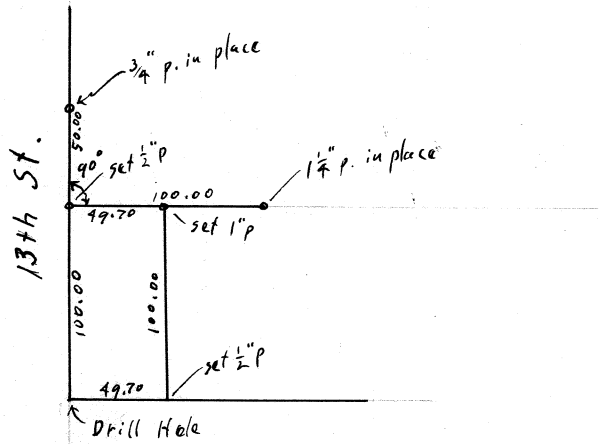 3/4" p. in place
50.00
90°
set 1/2" p
1 1/4" p. in place
100.00
49.70
set 1" p
13th St.
100.00
100.00
set 1/2" p
49.70
Drill Hole